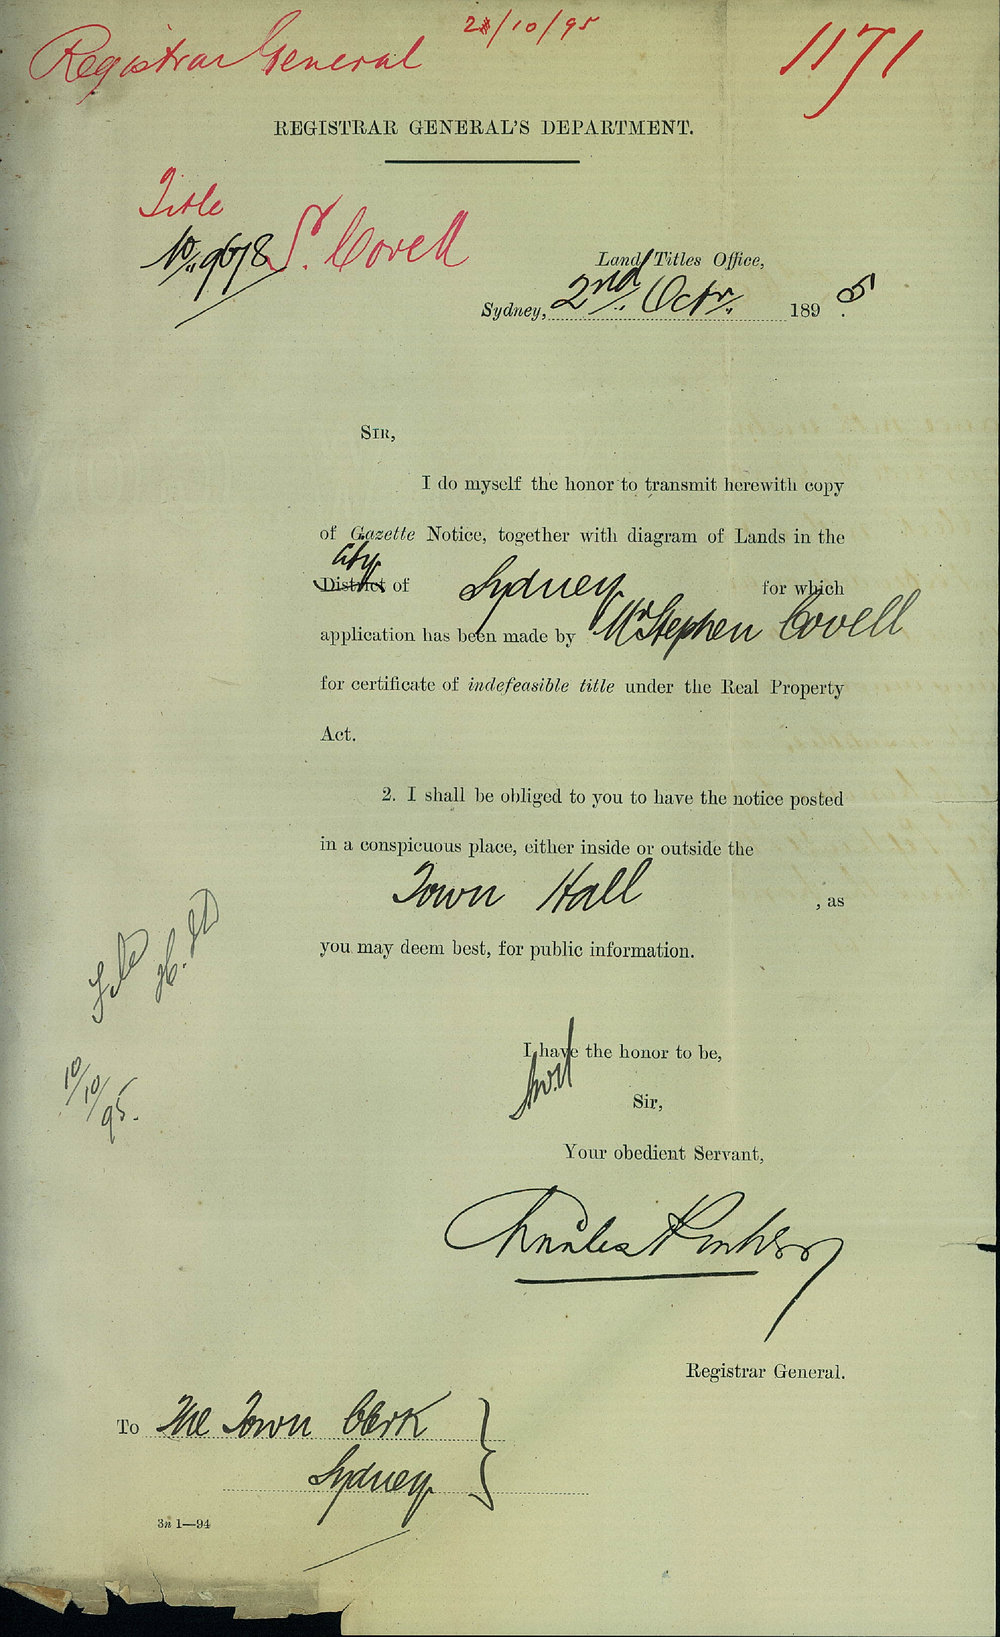 Registrar General
2/10/95
1171
REGISTRAR GENERAL'S DEPARTMENT.
Title
No. 9678 Sr. Covell
Land Titles Office,
Sydney, 2nd Octr. 1895.
SIR,
I do myself the honor to transmit herewith copy
of Gazette Notice, together with diagram of Lands in the
City
District of Sydney for which
application has been made by Mr Stephen Covell
for certificate of indefeasible title under the Real Property
Act.
2. I shall be obliged to you to have the notice posted
in a conspicuous place, either inside or outside the
Town Hall , as
you may deem best, for public information.
File
10/10/95.
I have the honor to be,
Sir,
Your obedient Servant,
Charles
Registrar General.
To The Town Clerk
Sydney
3n 1—94